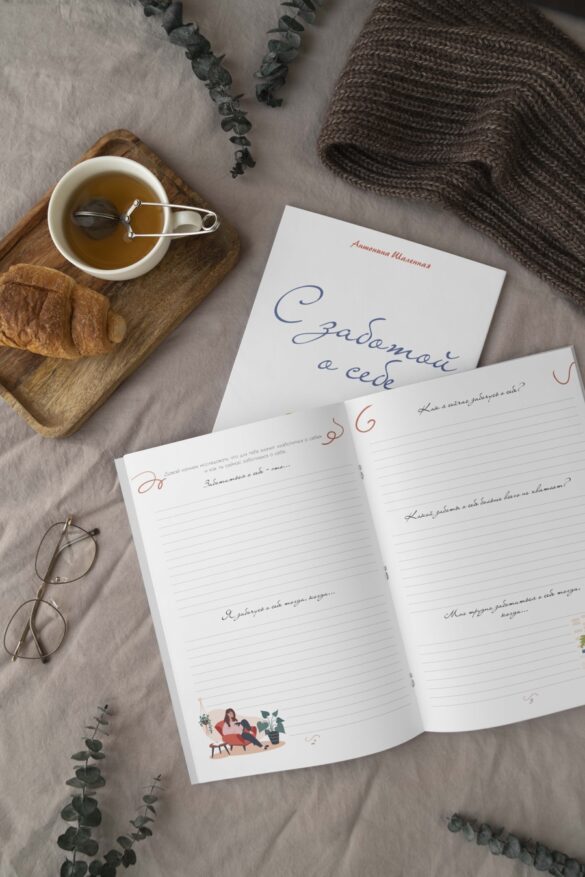 Антонина Шаленная
С заботой
о себе
Давай начнем исследовать, что для тебя значит заботиться о себе,
и как ты сейчас заботишься о себе.
Заботиться о себе - это...
Я забочусь о себе тогда, когда...
Как я сейчас забочусь о себе?
Какой заботы о себе больше всего не хватает?
Мне трудно заботиться о себе тогда,
когда...